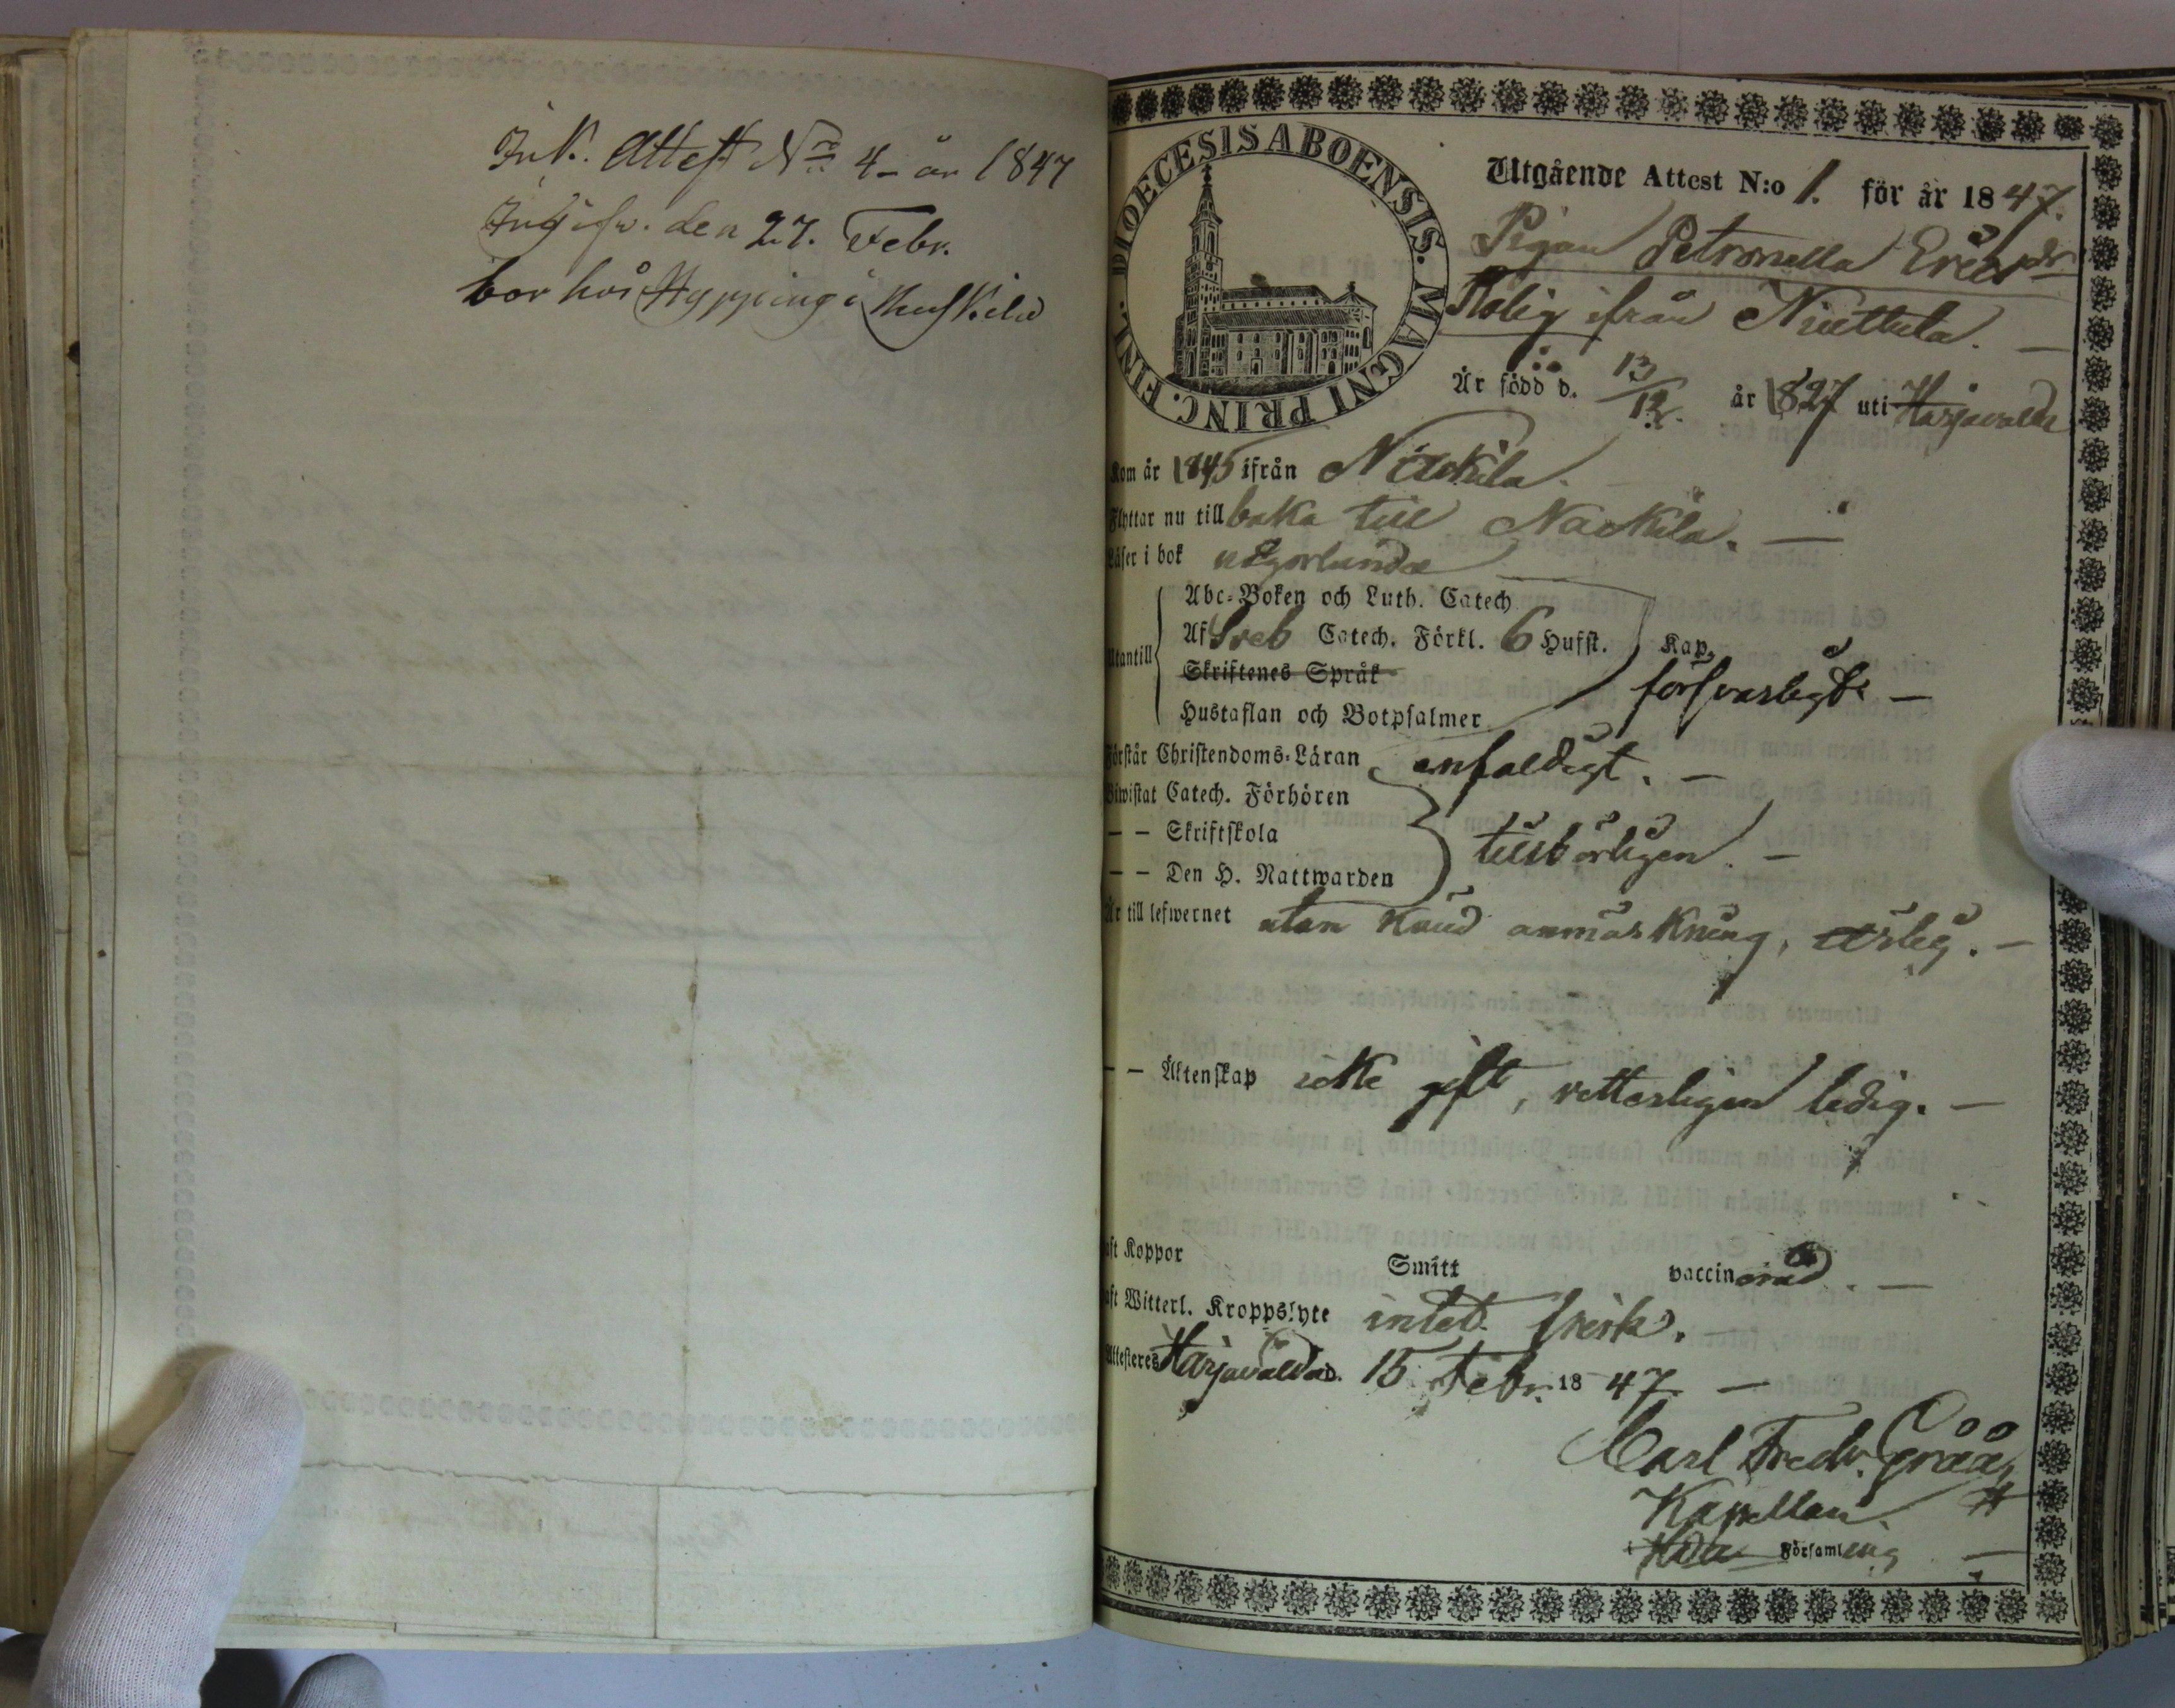 Ink. Attest No 4 - år 1847
Ingifw. den 27. Febr.
bor hos Hypping i
DIOECESIS ABOENSIS. MAGNI PRINC. FINL.
Utgående Attest N:o 1. för år 1847.
Pigan Petronella Ericsdr
Rolig ifrån Niuttula. —
Är född d. 13/12. år 1827 uti Harjavalda
Kom år 1845 ifrån Nackila.
Flyttar nu tillbaka till Nackila. —
Läser i bok någorlunda
Utantill
Abc-Boken och Luth. Catech
Af Sveb Catech. Förkl. 6 Hufst.
Skriftenes Språk
Hustaflan och Botpsalmer
Kap.
försvarligt —
Förstår Christendoms-Läran enfaldigt. —
Biwistat Catech. Förhören
— — Skriftskola
— — Den H. Nattwarden
tillbörligen. —
Är till lefwernet utan känd anmärkning, ärlig. —
— — Äktenskap icke gift, vetterligen ledig. —
Haft Koppor Smitt vaccinerad. —
Haft Witterl. Kroppslyte intet frisk.
Attesteres Harjavalda d. 15 Febr. 1847 —
Carl Fredr. Gråå,
Kapellan
i Hda Församling —